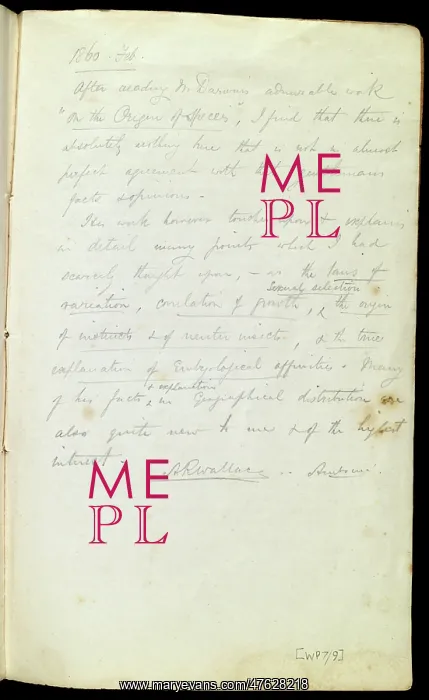 1860. Feb.
After reading Mr Darwin's admirable work
"On the Origin of Species", I find that there is
absolutely nothing here that is not in almost
perfect agreement with that gentlemans
facts & opinions.
His work however touches upon & explains
in detail many points which I had
scarcely thought upon, – as the laws of
variation, correlation of growth, sexual selection, the origin
of instincts & of neuter insects, & the true
explanation of Embryological affinities. Many
of his facts & explanations in Geographical distribution are
also quite new to me & of the highest
interest.
ARWallace .. Amboina.
ME
PL
ME
PL
[WP7/9]
www.maryevans.com/47628218